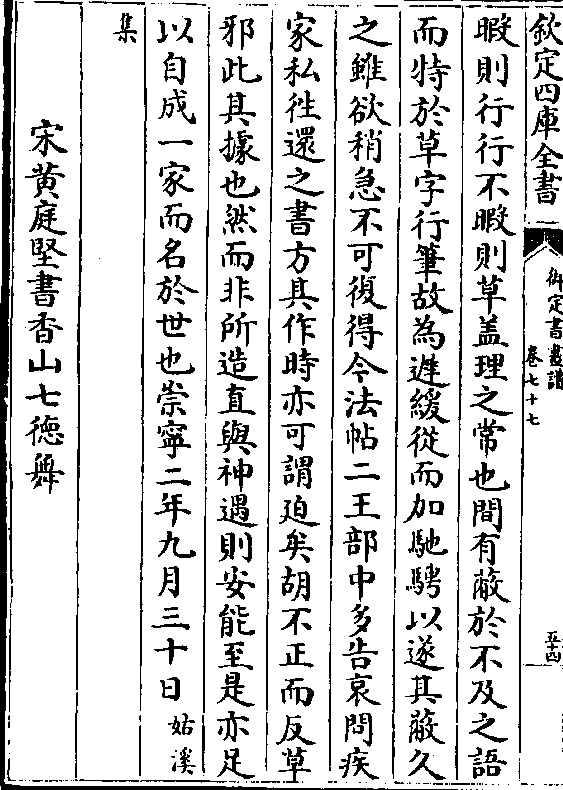 欽定四庫全書
御定書畫譜
卷七十七
五十四
暇則行行不暇則草盖理之常也間有蔽於不及之語
而特於草字行筆故為遲緩從而加馳騁以遂其蔽久
之雖欲稍急不可復得今法帖二王部中多告哀問疾
家私徃還之書方其作時亦可謂迫矣胡不正而反草
邪此其據也然而非所造直與神遇則安能至是亦足
以自成一家而名於世也崇寧二年九月三十日姑溪
集
宋黄庭堅書香山七徳舞